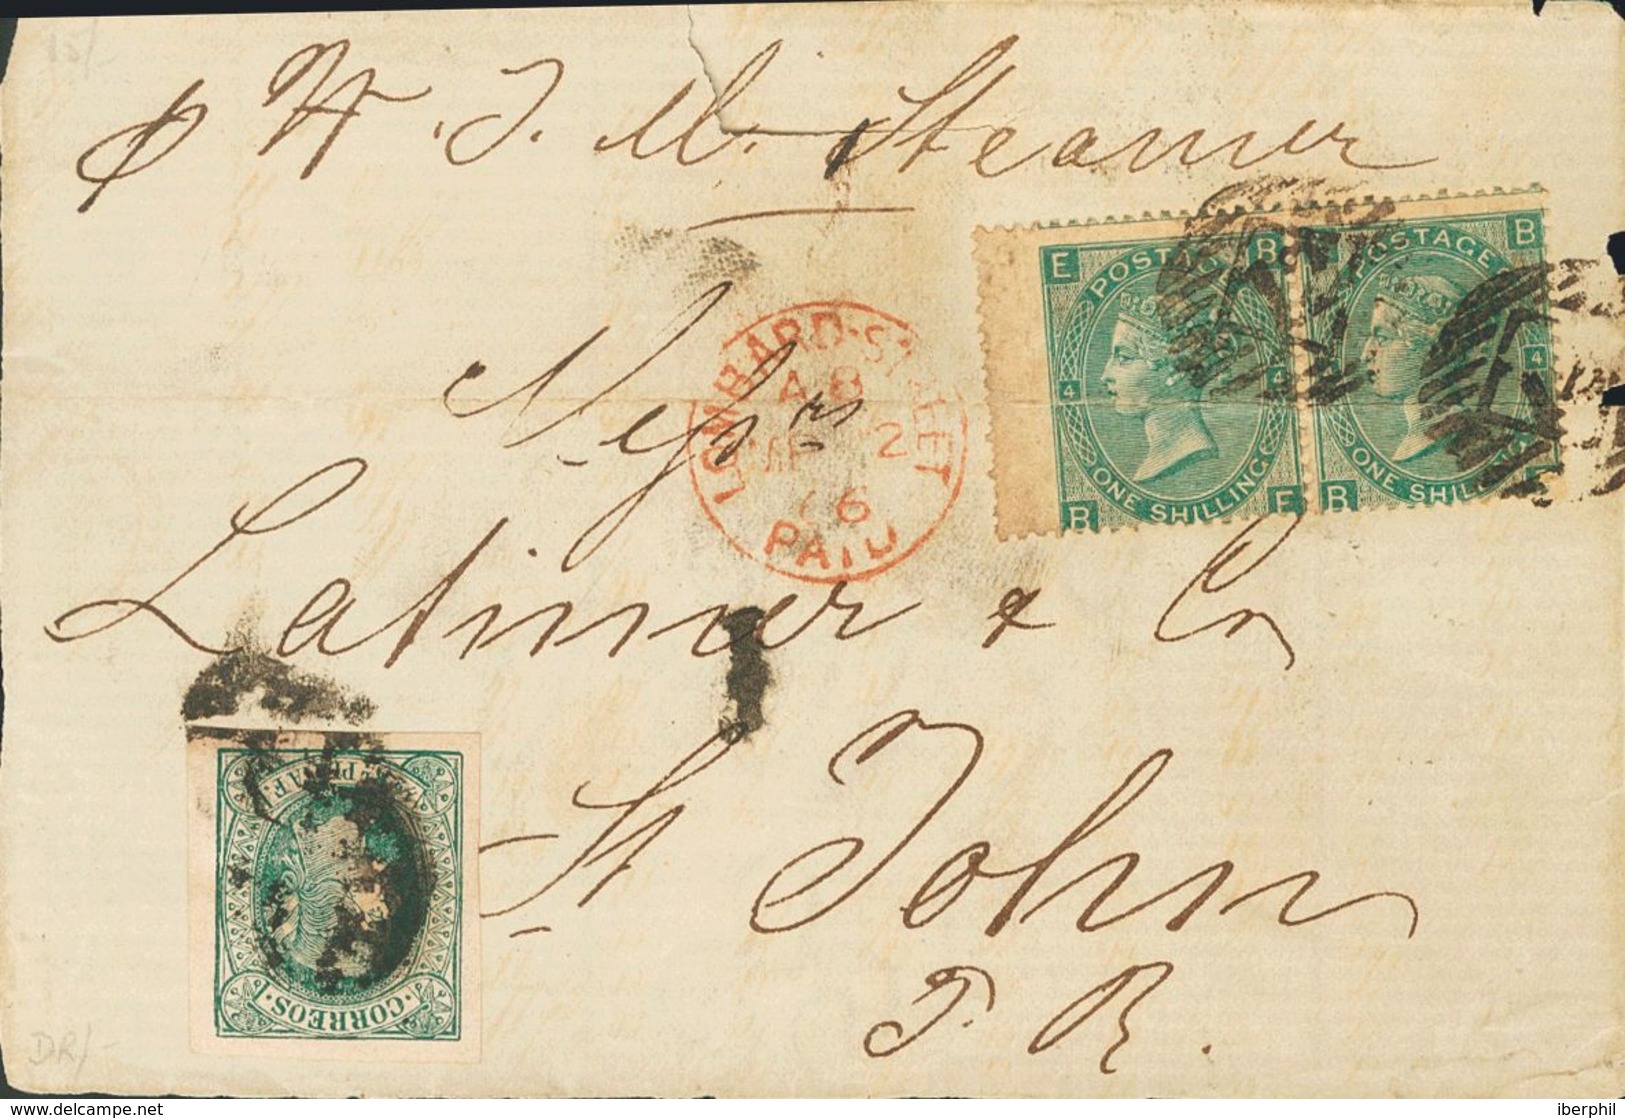 p W. I. M. Steamer
Messrs
Latimer & Co
St John
P. R.
LOMBARD·STREET
AB
2
66
PAID
E B
POSTAGE
4 4
ONE SHILLING
B E
B
POSTAGE
4
ONE SHILLING
B
PLATA F.
CORREOS
DR/-
www.delcampe.net
iberphil